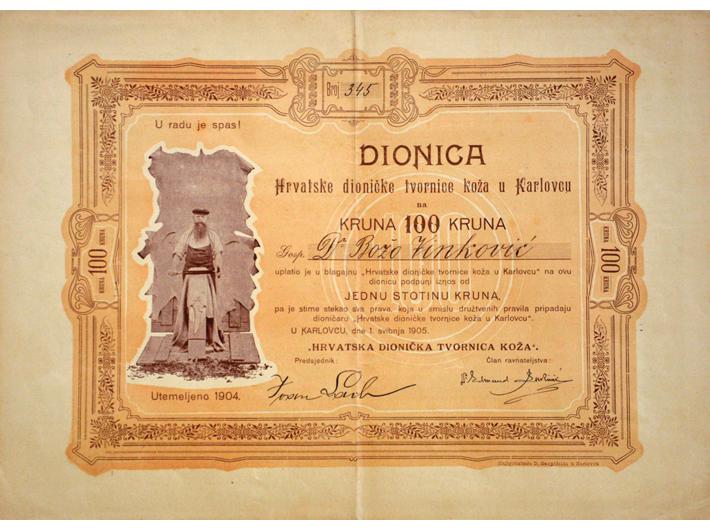 Broj 345
U radu je spas!
DIONICA
Hrvatske dioničke tvornice koža u Karlovcu
na
KRUNA 100 KRUNA
Gosp. Dr Božo Vinković
uplatio je u blagajnu „Hrvatske dioničke tvornice koža u Karlovcu“ na ovu
dionicu podpuni iznos od
JEDNU STOTINU KRUNA,
pa je stime stekao sva prava, koja u smislu družtvenih pravila pripadaju
dioničaru „Hrvatske dioničke tvornice koža u Karlovcu“.
U KARLOVCU, dne 1. svibnja 1905.
„HRVATSKA DIONIČKA TVORNICA KOŽA“.
Predsjednik: Član ravnateljstva:
Edmund
Utemeljeno 1904.
KRUNA 100 KRUNA
KRUNA 100 KRUNA